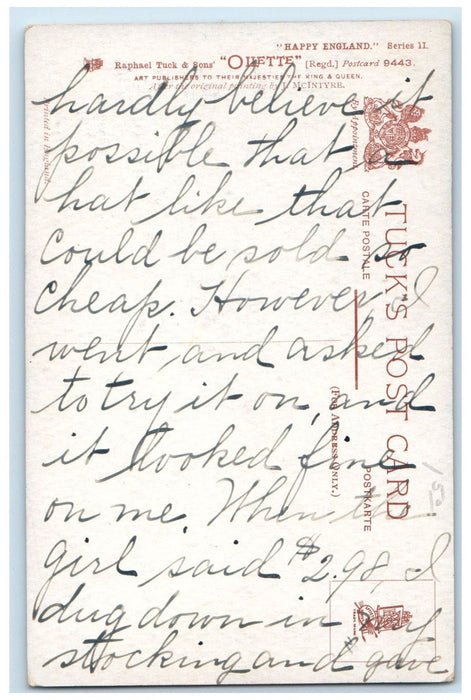 "HAPPY ENGLAND." Series II.
Raphael Tuck & Sons' "OILETTE" [Regd.] Postcard 9443.
ART PUBLISHERS TO THEIR MAJESTIES THE KING & QUEEN.
After the original painting by J. McINTYRE.
Printed in England
By Appointment
TUCK'S POST CARD
CARTE POSTALE
POSTKARTE
(FOR ADDRESS ONLY.)
hardly believe it
possible that a
hat like that
could be sold so
cheap. However, I
went, and asked
to try it on, and
it looked fine
on me. When the
girl said $2.98, I
dug down in my
stocking and gave